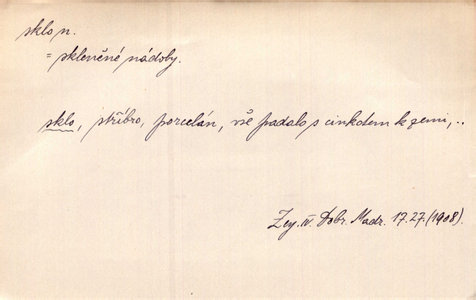 sklo n.
= skleněné nádoby.
sklo, stříbro, porcelán, vše padalo s cinkotem k zemi,..
Zey. IV. Dobr. Madr. 17. 27. (1908).